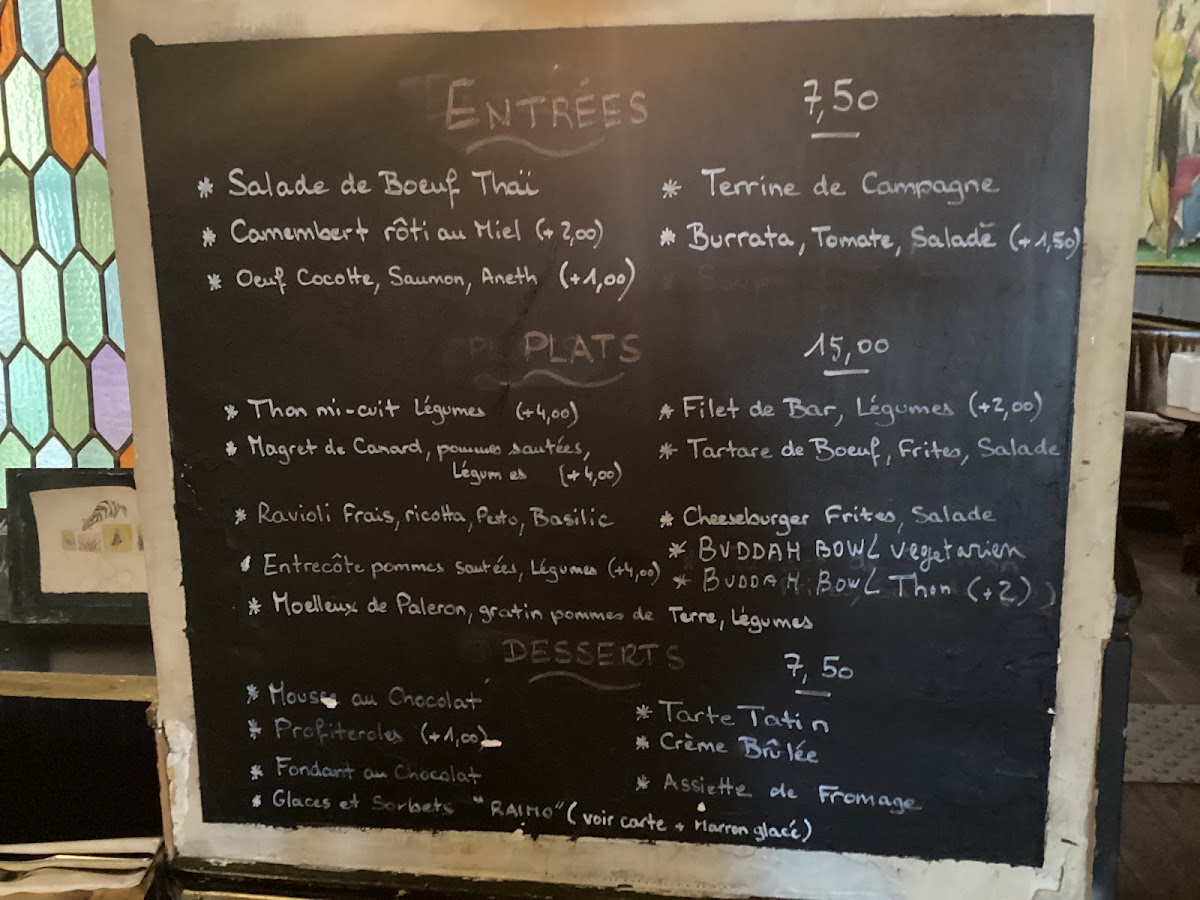 ENTRÉES 7,50
* Salade de Boeuf Thaï
* Camembert rôti au Miel (+2,00)
* Oeuf Cocotte, Saumon, Aneth (+1,00)
* Terrine de Campagne
* Burrata, Tomate, Salade (+1,50)
PLATS 15,00
* Thon mi-cuit Légumes (+4,00)
* Magret de Canard, pommes sautées,
Légumes (+4,00)
* Ravioli Frais, ricotta, Pesto, Basilic
* Entrecôte pommes sautées, Légumes (+4,00)
* Moelleux de Paleron, gratin pommes de Terre, Légumes
* Filet de Bar, Légumes (+2,00)
* Tartare de Boeuf, Frites, Salade
* Cheeseburger Frites, Salade
* BUDDAH BOWL vegetarien
* BUDDAH BOWL Thon (+2)
DESSERTS 7,50
* Mousse au Chocolat
* Profiteroles (+1,00)
* Fondant au Chocolat
* Glaces et Sorbets "RAIMO" (voir carte + Marron glacé)
* Tarte Tatin
* Crème Brûlée
* Assiette de Fromage